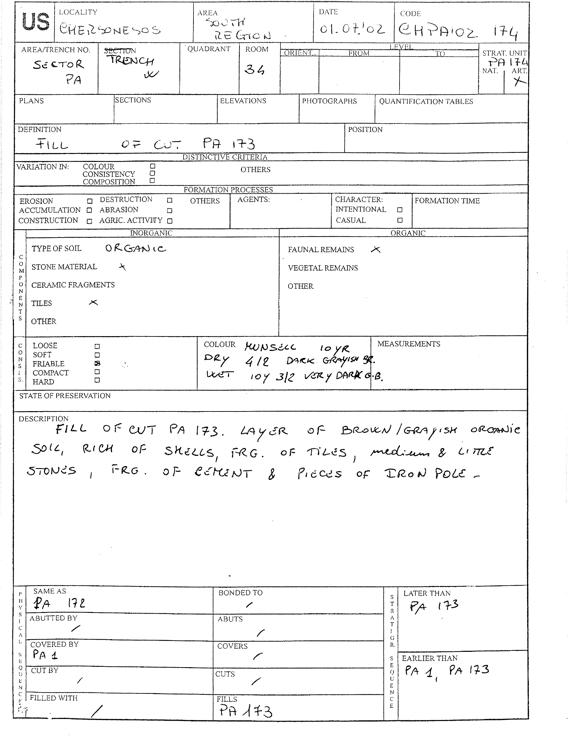 US
LOCALITY
CHERSONESOS
AREA
SOUTH
REGION
DATE
01.07.'02
CODE
CHPA'02 174
AREA/TRENCH NO.
SECTOR
PA
SECTION
TRENCH
W
QUADRANT
ROOM
34
LEVEL
ORIENT. FROM TO
STRAT. UNIT
PA 174
NAT. ART.
X
PLANS
SECTIONS
ELEVATIONS
PHOTOGRAPHS
QUANTIFICATION TABLES
DEFINITION
FILL OF CUT PA 173
POSITION
DISTINCTIVE CRITERIA
VARIATION IN: COLOUR
CONSISTENCY
COMPOSITION
OTHERS
FORMATION PROCESSES
EROSION DESTRUCTION OTHERS
ACCUMULATION ABRASION
CONSTRUCTION AGRIC. ACTIVITY
AGENTS:
CHARACTER:
INTENTIONAL
CASUAL
FORMATION TIME
INORGANIC
ORGANIC
COMPONENTS
TYPE OF SOIL ORGANIC
STONE MATERIAL X
CERAMIC FRAGMENTS
TILES X
OTHER
FAUNAL REMAINS X
VEGETAL REMAINS
OTHER
CONSIS.
LOOSE
SOFT
FRIABLE
COMPACT
HARD
COLOUR MUNSELL 10YR
DRY 4/2 DARK GRAYISH BR.
WET 10Y 3/2 VERY DARK G.B.
MEASUREMENTS
STATE OF PRESERVATION
DESCRIPTION
FILL OF CUT PA 173. LAYER OF BROWN/GRAYISH ORGANIC
SOIL, RICH OF SHELLS, FRG. OF TILES, medium & LITTLE
STONES, FRG. OF CEMENT & PIECES OF IRON POLE -
PHYSICAL SEQUENCE
SAME AS
PA 172
BONDED TO
/
ABUTTED BY
/
ABUTS
/
COVERED BY
PA 1
COVERS
/
CUT BY
/
CUTS
/
FILLED WITH
/
FILLS
PA 173
STRATIGR. SEQUENCE
LATER THAN
PA 173
EARLIER THAN
PA 1, PA 173